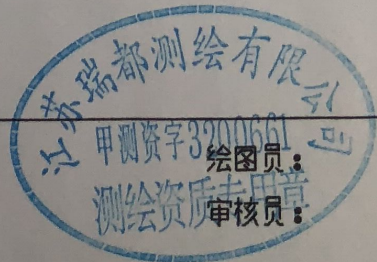 江苏瑞都测绘有限公司
甲测资字3200661
测绘资质专用章
绘图员：
审核员：